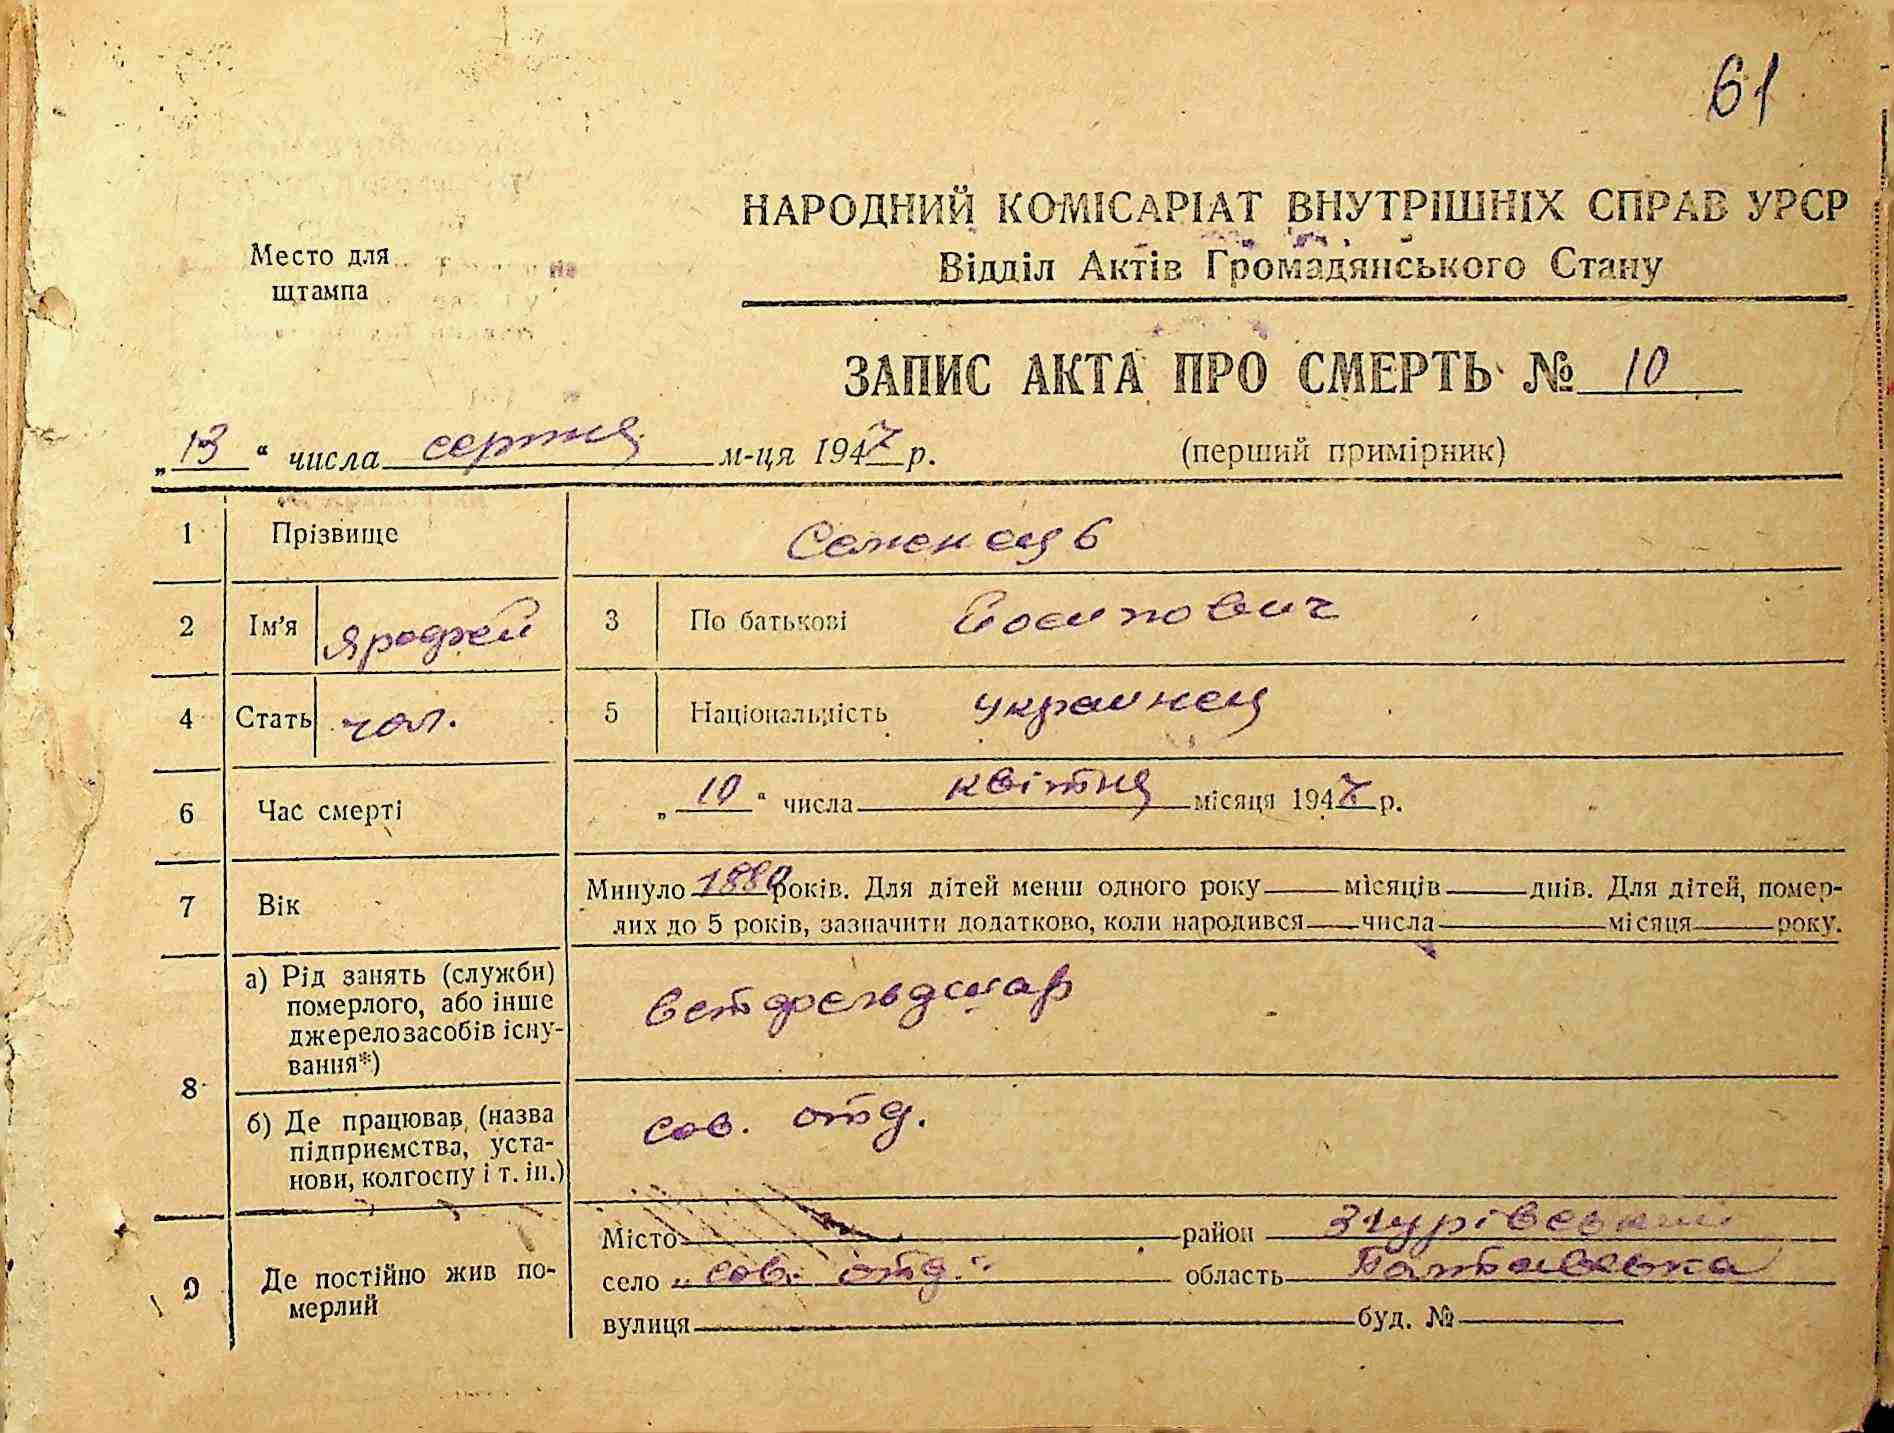 61
НАРОДНИЙ КОМІСАРІАТ ВНУТРІШНІХ СПРАВ УРСР
Відділ Актів Громадянського Стану
Место для
штампа
ЗАПИС АКТА ПРО СМЕРТЬ № 10
„13“ числа серпня м-ця 1947 р. (перший примірник)
1 Прізвище Семенець
2 Ім'я Ярофей 3 По батькові Йосипович
4 Стать чол. 5 Національність украинец
6 Час смерті „10“ числа квітня місяця 1947 р.
7 Вік Минуло 1880 років. Для дітей менш одного року місяців днів. Для дітей, помер-
лих до 5 років, зазначити додатково, коли народився числа місяця року.
8 а) Рід занять (служби)
померлого, або інше
джерело засобів існу-
вання*) ветфельдшар
б) Де працював, (назва
підприємства, уста-
нови, колгоспу і т. ін.) сов. отд.
9 Де постійно жив по-
мерлий
Місто район Згурівський
село „сов. отд." область Полтавська
вулиця буд. №